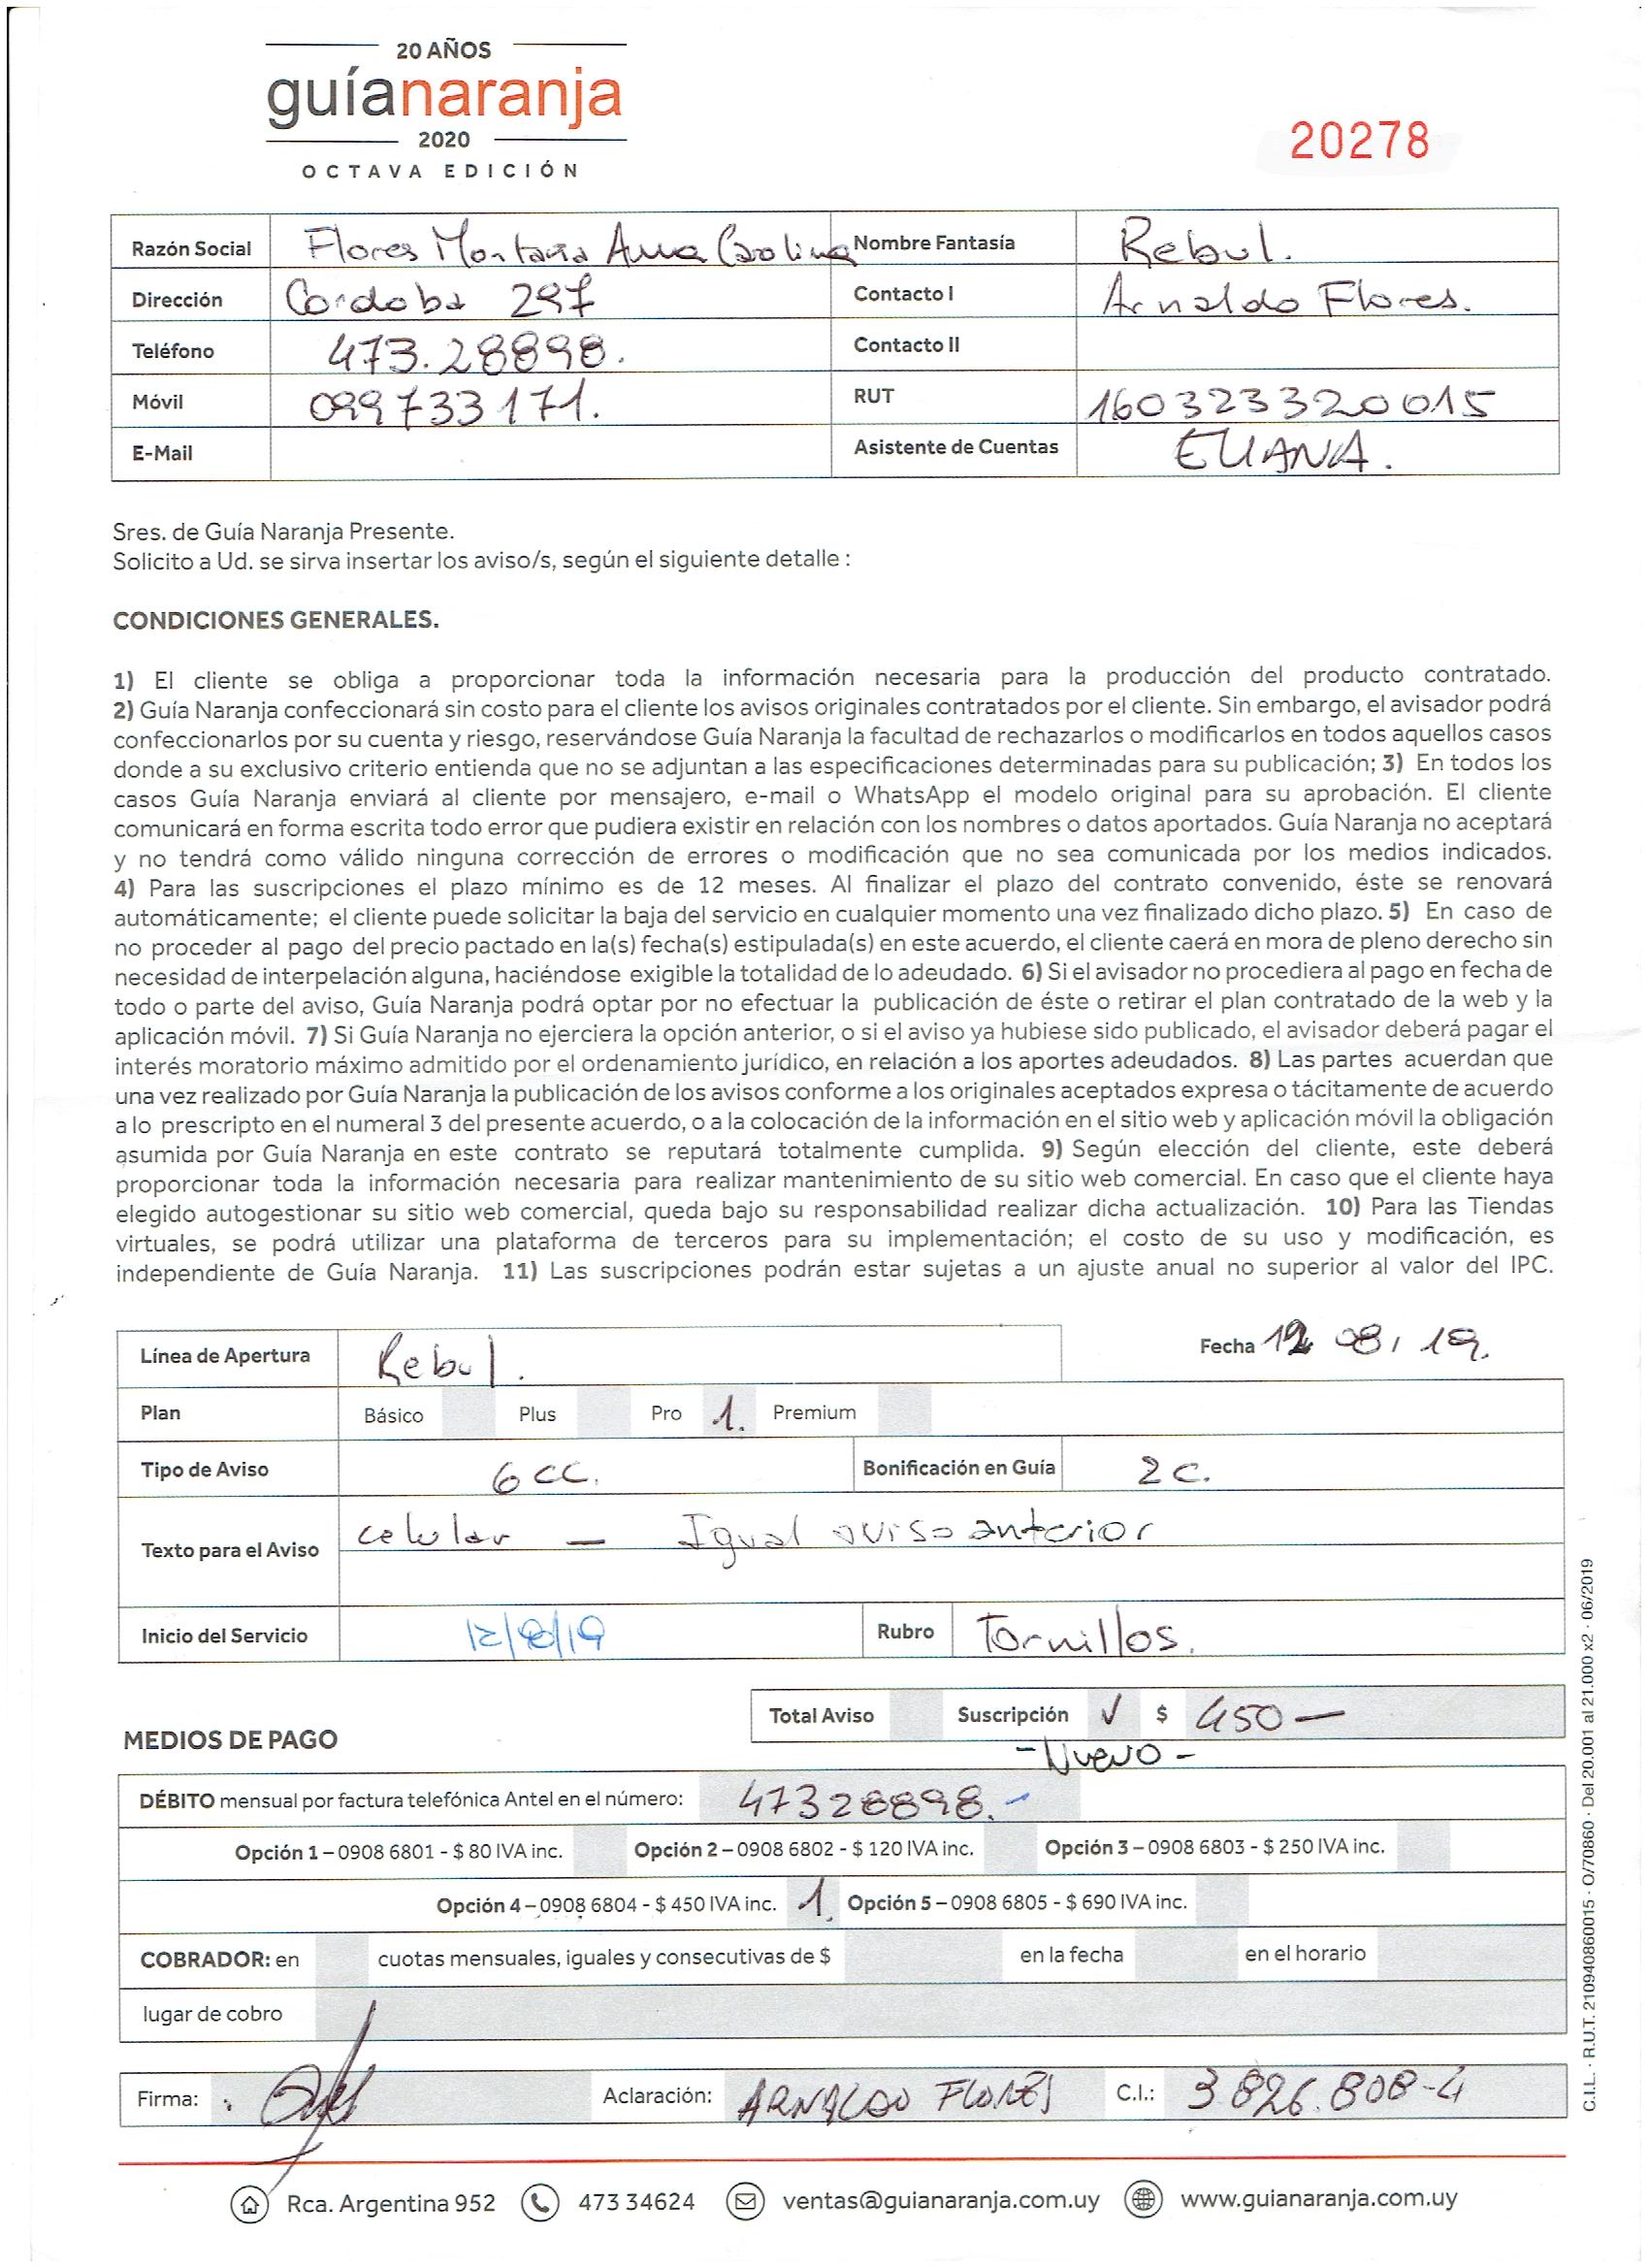 20 AÑOS
guíanaranja
2020
OCTAVA EDICIÓN
20278
Razón Social Flores Montaña Anna Carolina Nombre Fantasía Rebul.
Dirección Cordoba 297 Contacto I Arnaldo Flores.
Teléfono 473.28898. Contacto II
Móvil 099733171. RUT 160323320015
E-Mail Asistente de Cuentas ELIANA.
Sres. de Guía Naranja Presente.
Solicito a Ud. se sirva insertar los aviso/s, según el siguiente detalle :
CONDICIONES GENERALES.
1) El cliente se obliga a proporcionar toda la información necesaria para la producción del producto contratado.
2) Guía Naranja confeccionará sin costo para el cliente los avisos originales contratados por el cliente. Sin embargo, el avisador podrá
confeccionarlos por su cuenta y riesgo, reservándose Guía Naranja la facultad de rechazarlos o modificarlos en todos aquellos casos
donde a su exclusivo criterio entienda que no se adjuntan a las especificaciones determinadas para su publicación; 3) En todos los
casos Guía Naranja enviará al cliente por mensajero, e-mail o WhatsApp el modelo original para su aprobación. El cliente
comunicará en forma escrita todo error que pudiera existir en relación con los nombres o datos aportados. Guía Naranja no aceptará
y no tendrá como válido ninguna corrección de errores o modificación que no sea comunicada por los medios indicados.
4) Para las suscripciones el plazo mínimo es de 12 meses. Al finalizar el plazo del contrato convenido, éste se renovará
automáticamente; el cliente puede solicitar la baja del servicio en cualquier momento una vez finalizado dicho plazo. 5) En caso de
no proceder al pago del precio pactado en la(s) fecha(s) estipulada(s) en este acuerdo, el cliente caerá en mora de pleno derecho sin
necesidad de interpelación alguna, haciéndose exigible la totalidad de lo adeudado. 6) Si el avisador no procediera al pago en fecha de
todo o parte del aviso, Guía Naranja podrá optar por no efectuar la publicación de éste o retirar el plan contratado de la web y la
aplicación móvil. 7) Si Guía Naranja no ejerciera la opción anterior, o si el aviso ya hubiese sido publicado, el avisador deberá pagar el
interés moratorio máximo admitido por el ordenamiento jurídico, en relación a los aportes adeudados. 8) Las partes acuerdan que
una vez realizado por Guía Naranja la publicación de los avisos conforme a los originales aceptados expresa o tácitamente de acuerdo
a lo prescripto en el numeral 3 del presente acuerdo, o a la colocación de la información en el sitio web y aplicación móvil la obligación
asumida por Guía Naranja en este contrato se reputará totalmente cumplida. 9) Según elección del cliente, este deberá
proporcionar toda la información necesaria para realizar mantenimiento de su sitio web comercial. En caso que el cliente haya
elegido autogestionar su sitio web comercial, queda bajo su responsabilidad realizar dicha actualización. 10) Para las Tiendas
virtuales, se podrá utilizar una plataforma de terceros para su implementación; el costo de su uso y modificación, es
independiente de Guía Naranja. 11) Las suscripciones podrán estar sujetas a un ajuste anual no superior al valor del IPC.
Línea de Apertura Rebul. Fecha 12 08, 19.
Plan Básico Plus Pro 1. Premium
Tipo de Aviso 6 cc. Bonificación en Guía 2 c.
Texto para el Aviso celular — Igual aviso anterior
Inicio del Servicio 12/8/19 Rubro Tornillos.
Total Aviso Suscripción ✓ $ 450 —
MEDIOS DE PAGO
- Nuevo -
DÉBITO mensual por factura telefónica Antel en el número: 47328898.-
Opción 1 – 0908 6801 - $ 80 IVA inc. Opción 2 – 0908 6802 - $ 120 IVA inc. Opción 3 – 0908 6803 - $ 250 IVA inc.
Opción 4 – 0908 6804 - $ 450 IVA inc. 1. Opción 5 – 0908 6805 - $ 690 IVA inc.
COBRADOR: en cuotas mensuales, iguales y consecutivas de $ en la fecha en el horario
lugar de cobro
Firma: Aclaración: ARNALDO FLORES C.I.: 3.826.808-4
Rca. Argentina 952 473 34624 ventas@guianaranja.com.uy www.guianaranja.com.uy
C.I.L. · R.U.T. 210940860015 · O/70860 · Del 20.001 al 21.000 x2 · 06/2019